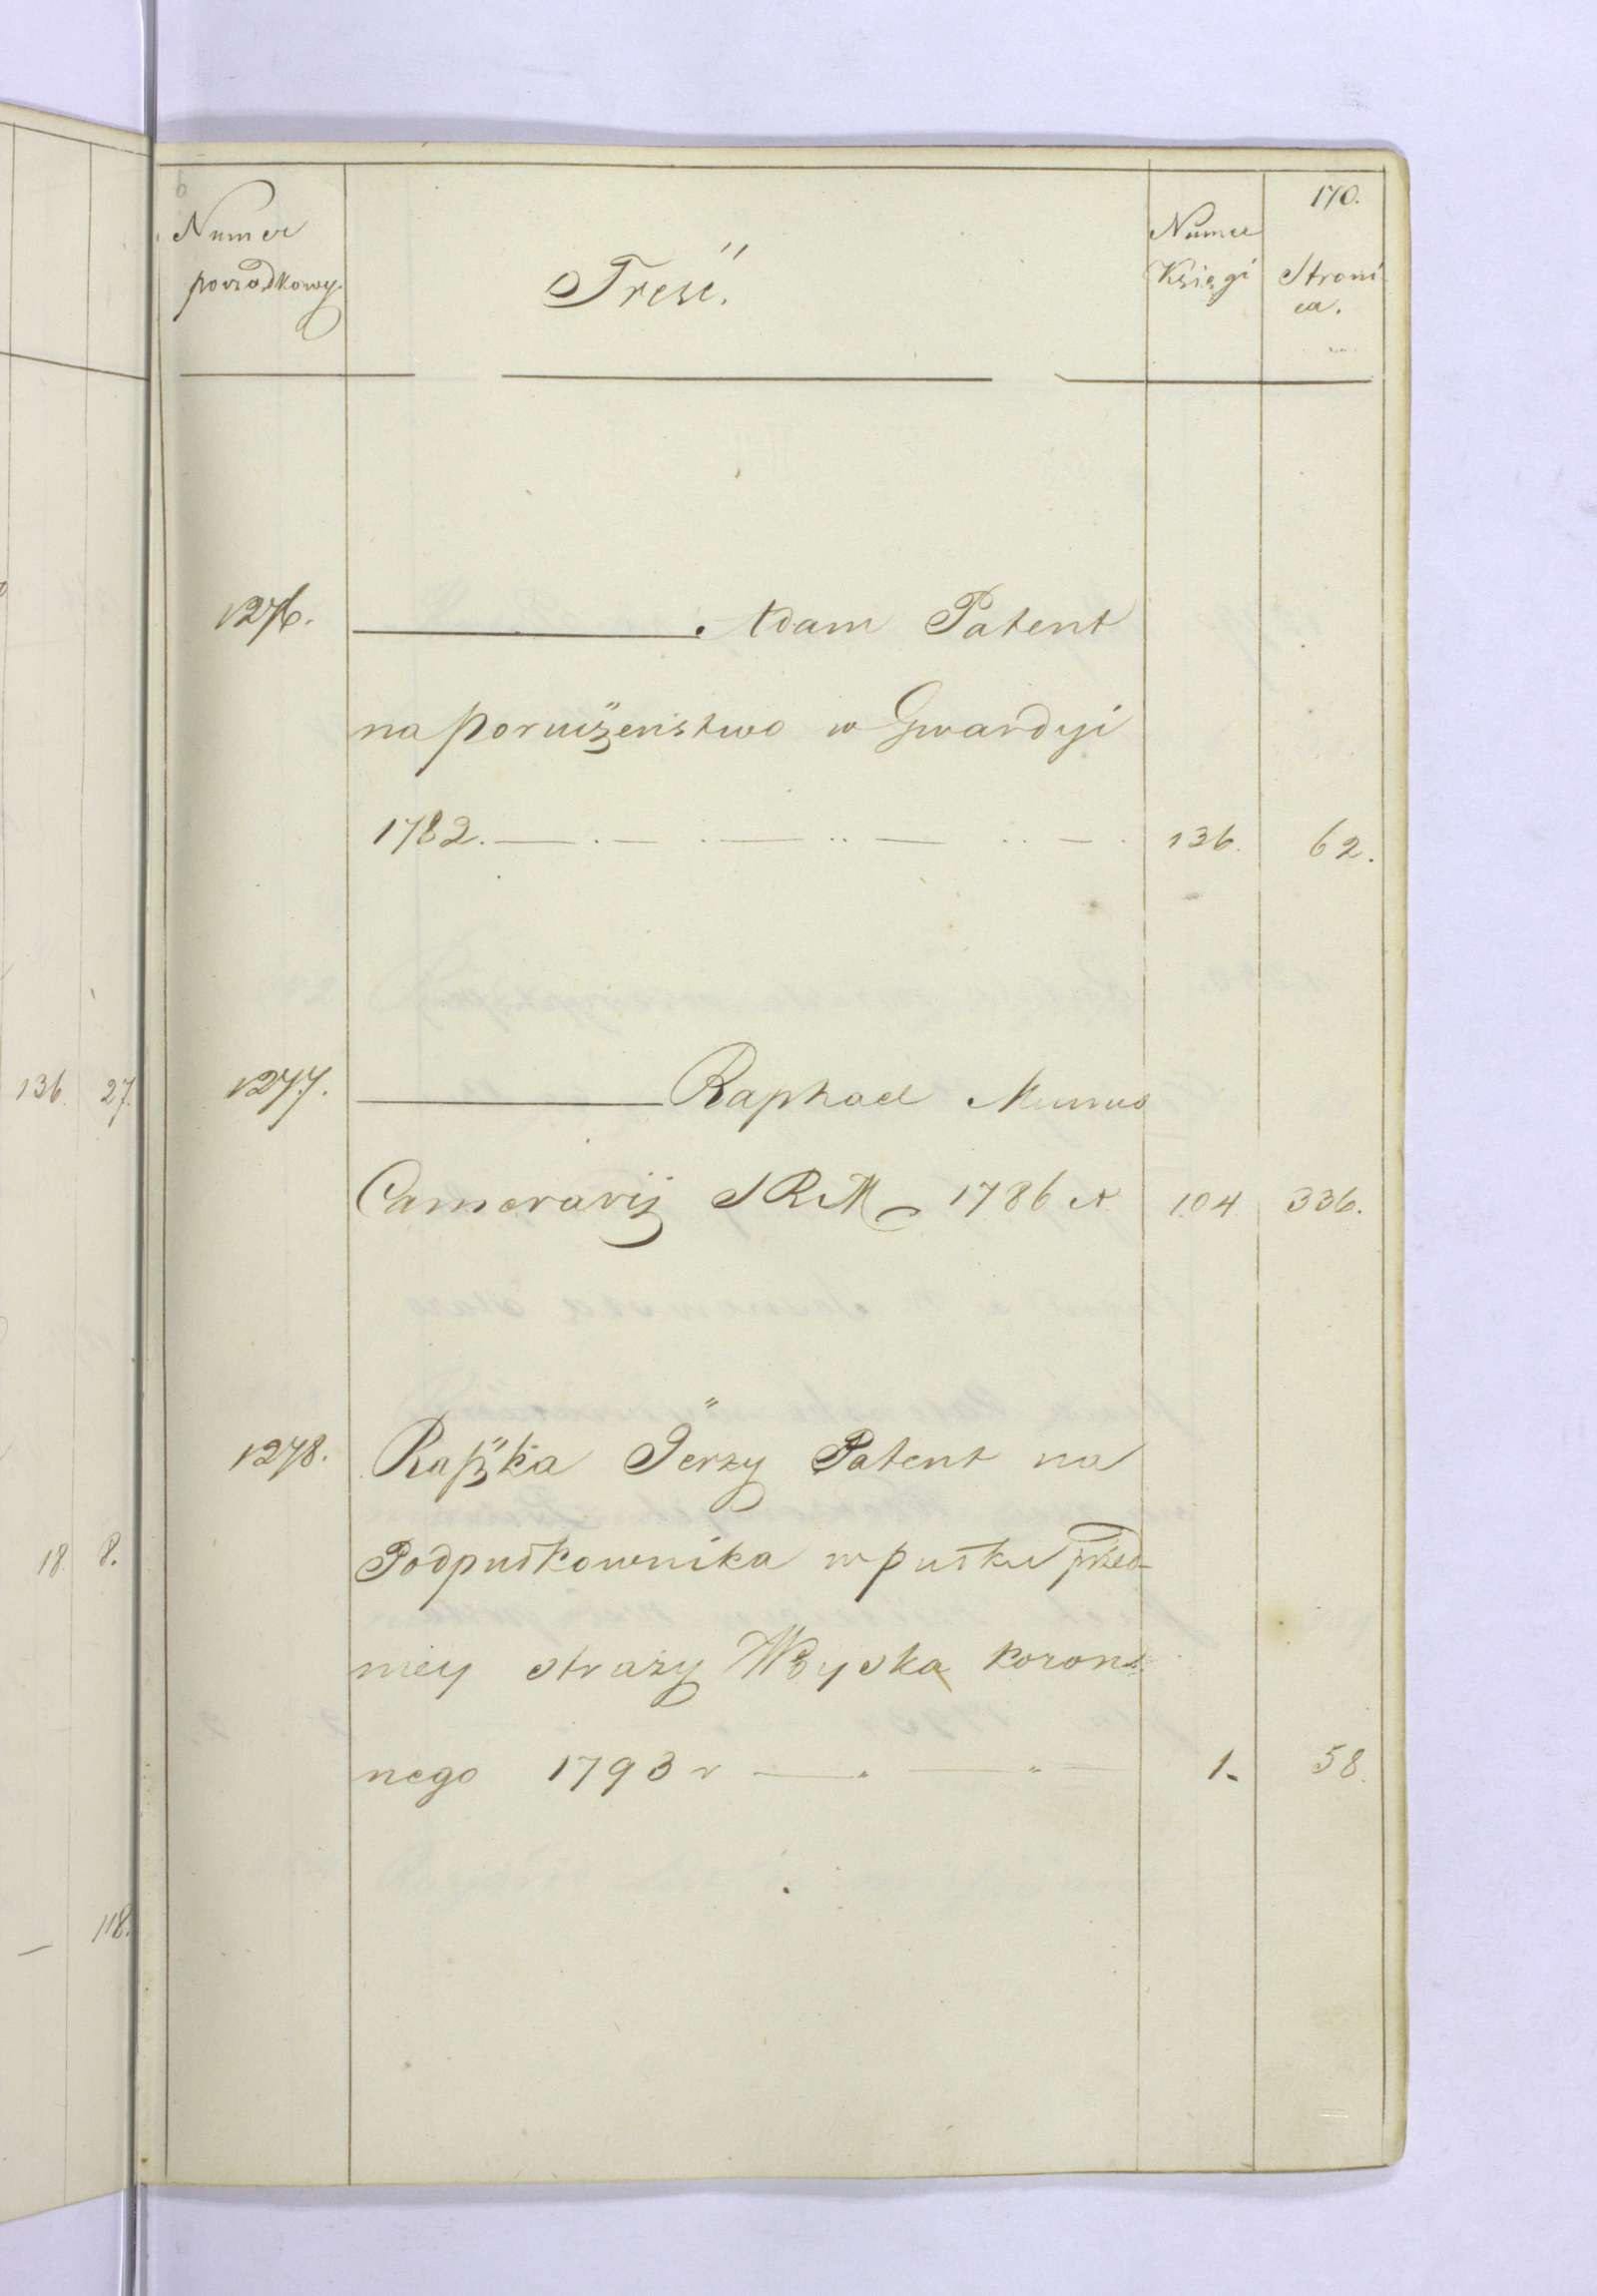 170.
Numer porządkowy.
Treść.
Numer Księgi
Stroni ca.
1276. Adam Patent
na Porucżeństwo w Gwardyi
1782. 136. 62.
1277. Raphael Munus
Camerarij SRM 1786 r. 104 336.
1278. Raszka Jerzy Patent na
Podpułkownika w pułku przed-
niey straży Woyska koron-
nego 1793 r 1. 58.
136. 27.
18. 8.
118.